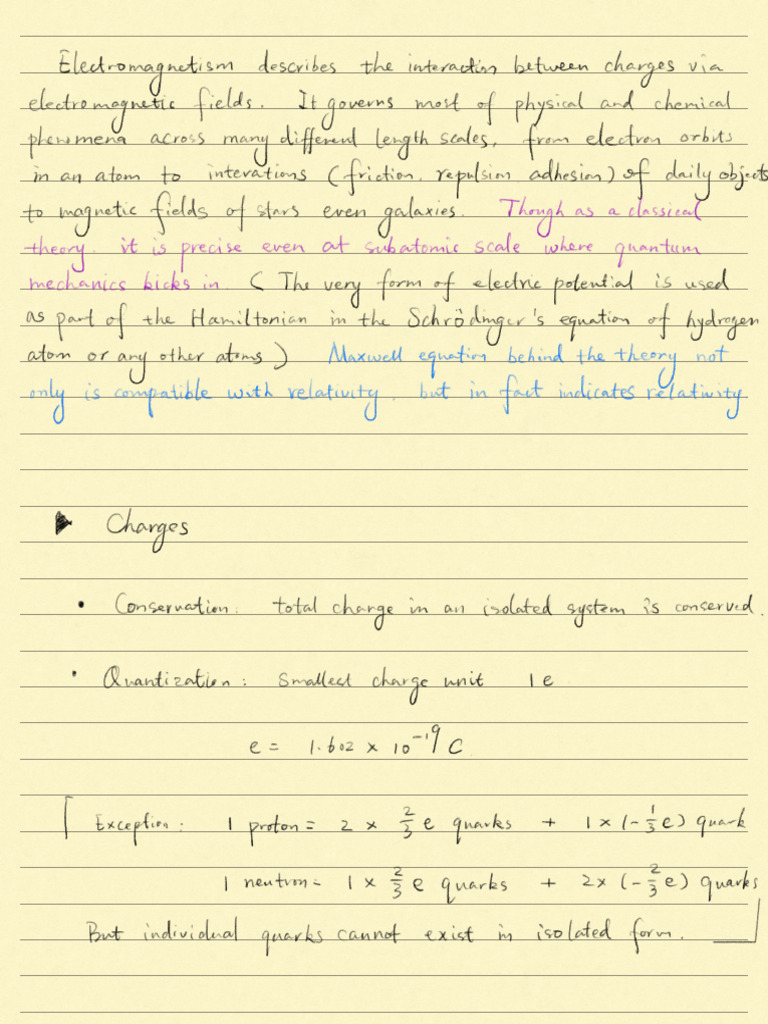 Electromagnetism describes the interaction between charges via
electromagnetic fields. It governs most of physical and chemical
phenomena across many different length scales, from electron orbits
in an atom to interations (friction, repulsion adhesion) of daily objects
to magnetic fields of stars even galaxies. Though as a classical
theory. it is precise even at subatomic scale where quantum
mechanics kicks in. ( The very form of electric potential is used
as part of the Hamiltonian in the Schrödinger's equation of hydrogen
atom or any other atoms) Maxwell equation behind the theory not
only is compatible with relativity, but in fact indicates relativity
▶ Charges
• Conservation: total charge in an isolated system is conserved.
• Quantization: smallest charge unit 1e
e = 1.602 × 10⁻¹⁹ C
[ Exception: 1 proton = 2 × 2/3 e quarks + 1 × (-1/3 e) quark
1 neutron = 1 × 2/3 e quarks + 2 × (-2/3 e) quarks
But individual quarks cannot exist in isolated form. ]